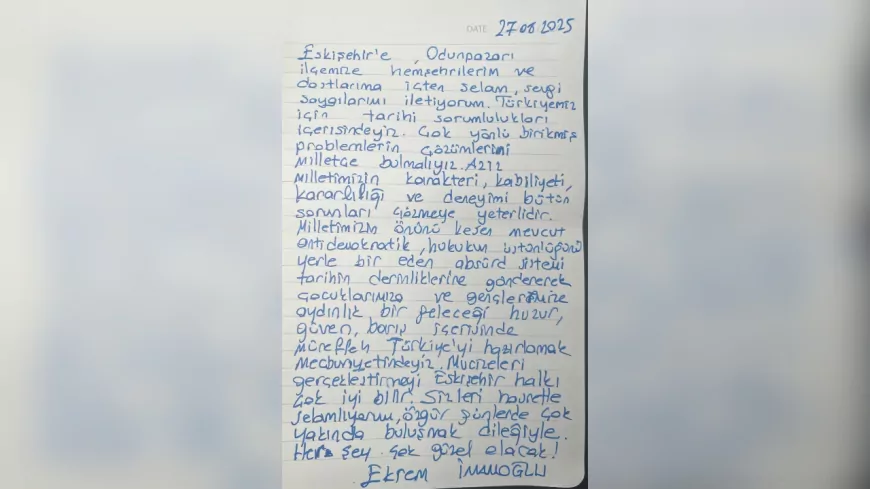 DATE 27 08 2025
Eskişehir'e, Odunpazarı
ilçemize hemşehrilerim ve
dostlarıma içten selam, sevgi
saygılarımı iletiyorum. Türkiyemiz
için tarihi sorumlulukları
içerisindeyiz. Çok yönlü birikmiş
problemlerin çözümlerini
Milletçe bulmalıyız. Aziz
Milletimizin karakteri, kabiliyeti,
kararlılığı ve deneyimi bütün
sorunları çözmeye yeterlidir.
Milletimizin önünü kesen mevcut
antidemokratik, hukukun üstünlüğünü
yerle bir eden absürd sistemi
tarihin derinliklerine göndererek
çocuklarımıza ve gençlerimize
aydınlık bir geleceği huzur,
güven, barış içerisinde
müreffeh Türkiye'yi hazırlamak
mecburiyetindeyiz. Mucizeleri
gerçekleştirmeyi Eskişehir halkı
çok iyi bilir. Sizleri hasretle
selamlıyorum, özgür günlerde çok
yakında buluşmak dileğiyle.
Her şey çok güzel olacak!
Ekrem İMAMOĞLU